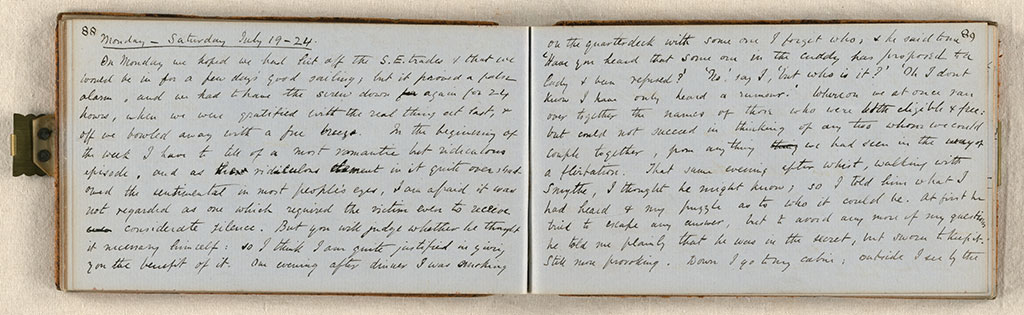 88
Monday – Saturday July 19–24.
On Monday we hoped we had hit off the S.E. trades & that we
would be in for a few days' good sailing, but it proved a false
alarm, and we had to have the screw down for again for 24
hours, when we were gratified with the real thing at last, &
off we bowled away with a fine breeze. In the beginning of
the week I have to tell of a most romantic but ridiculous
episode, and as the ridiculous element in it quite over-shad-
owed the sentimental in most people's eyes, I am afraid it was
not regarded as one which required the victim even to receive
considerate silence. But you will judge whether he thought
it necessary himself: so I think I am quite justified in giving
you the benefit of it. One evening after dinner I was smoking
89
on the quarterdeck with some one I forget who, & he said to me
'Have you heard that some one in the cuddy has proposed to a
lady & been refused?' 'No.' say I, 'but who is it?' 'Oh I don't
know I have only heard a rumour.' Whereon we at once ran
over together the names of those who were both eligible & free:
but could not succeed in thinking of any two whom we could
couple together, from anything we had seen in the way of
a flirtation. That same evening after whist, walking with
Smythe, I thought he might know; so I told him what I
had heard & my puzzle as to who it could be. At first he
tried to escape any answer, but to avoid any more of my questions
he told me plainly that he was in the secret, but sworn to keep it.
Still more provoking. Down I go to my cabin; outside I see by the